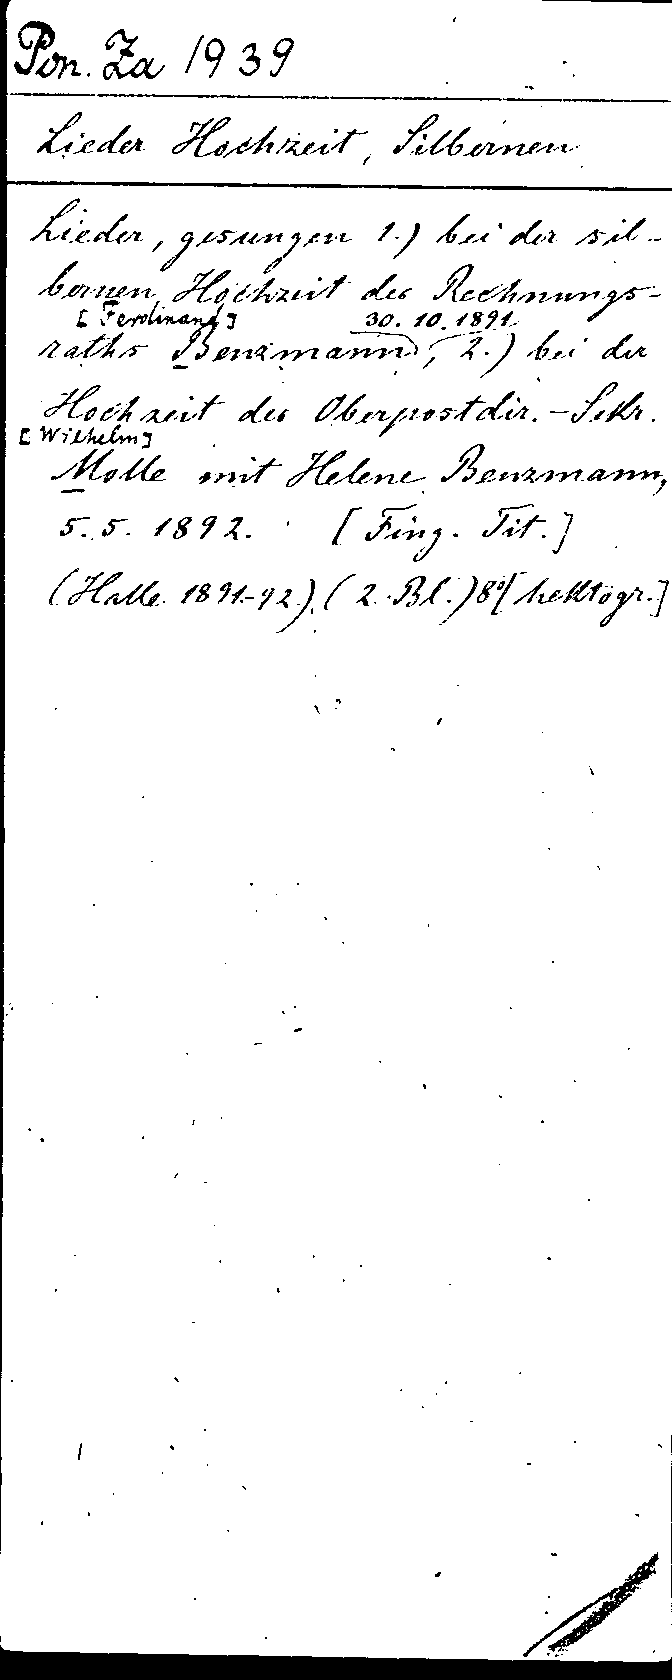 Pon. Za 1939
Lieder Hochzeit, Silbernen
Lieder, gesungen 1.) bei der sil-
bernen Hochzeit des Rechnungs-
[Ferdinand] 30.10.1891
raths Benzmann, 2.) bei der
Hochzeit des Oberpostdir.-Sekr.
[Wilhelm]
Molle mit Helene Benzmann,
5.5.1892. [Fing. Tit.]
(Halle 1891-92.) (2 Bl.) 8° [hektogr.]